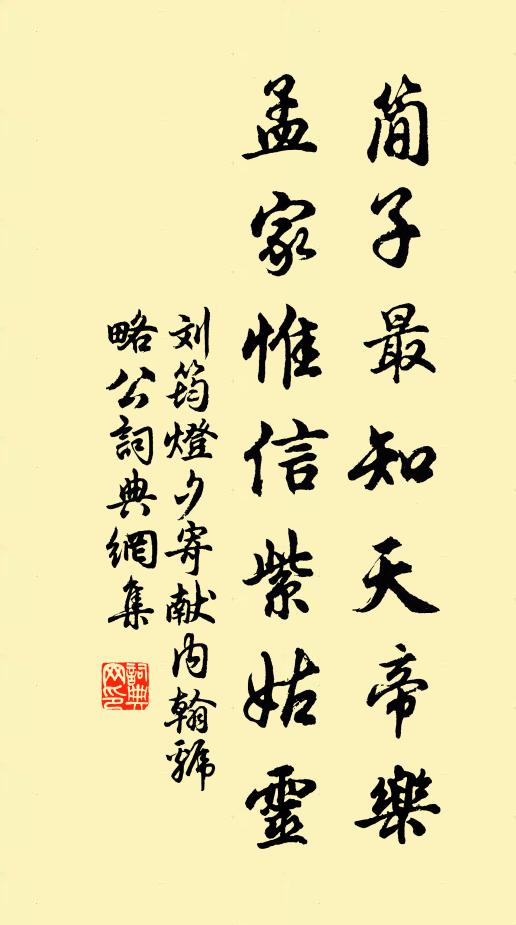 簡子最知天帝樂
孟家惟信紫姑靈
刘筠燈夕寄献内翰虢
略公詞典網集
詞典網印